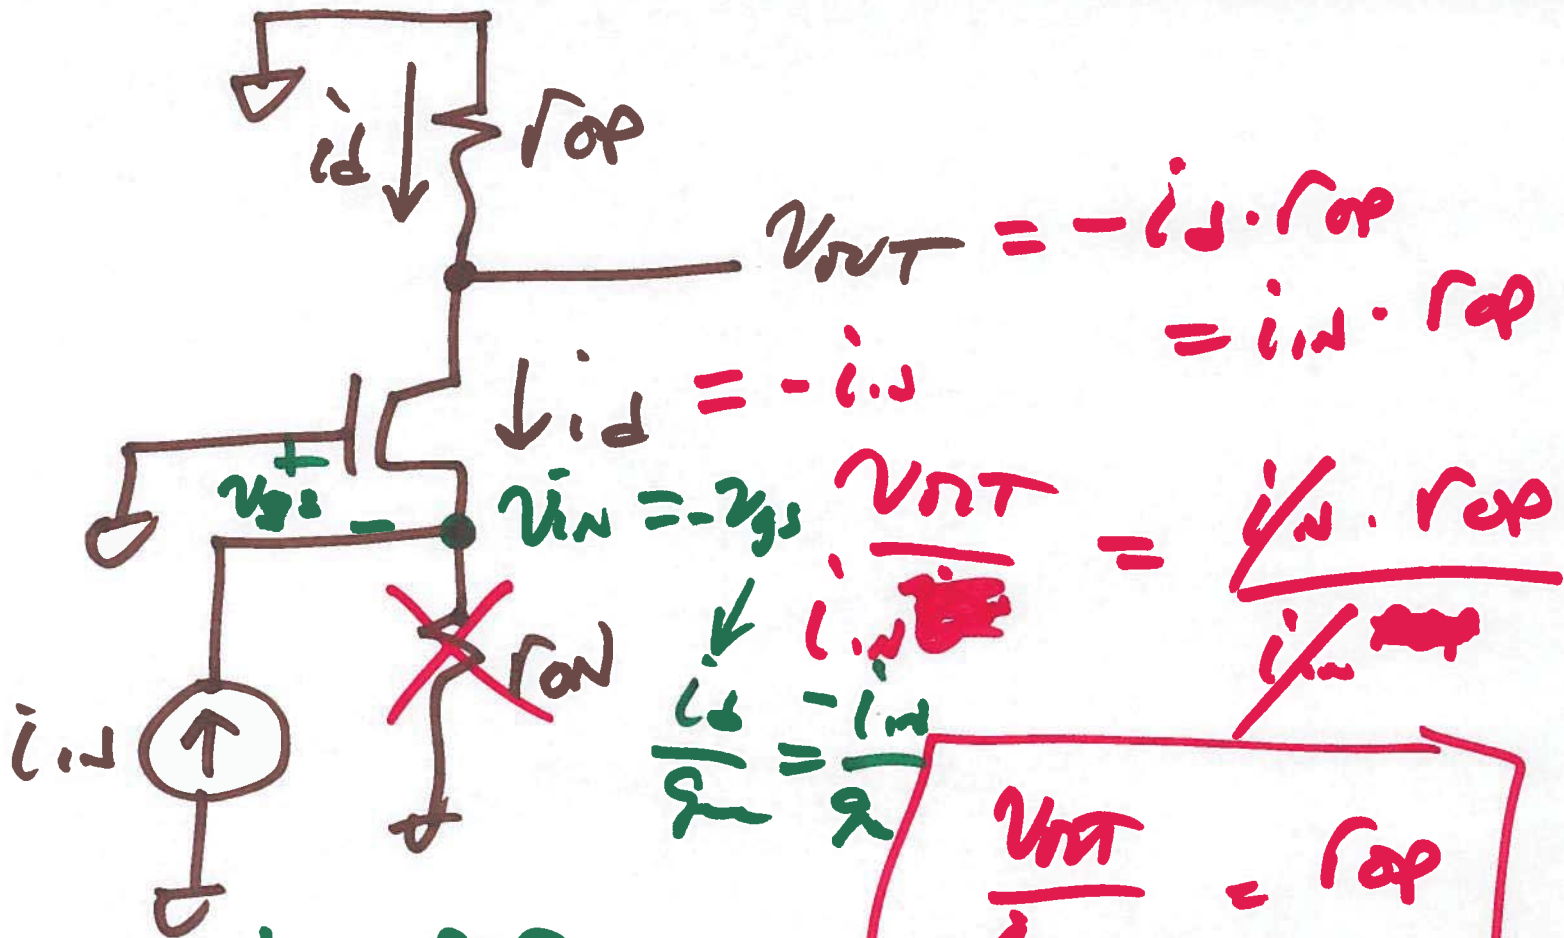 id
rop
vout = -id·rop
= iin · rop
id = -iin
+
vgs
-
vin = -vgs
vout / iin = iin · rop / iin
ron
iin
id / gm = -iin / g
vout / i = rop